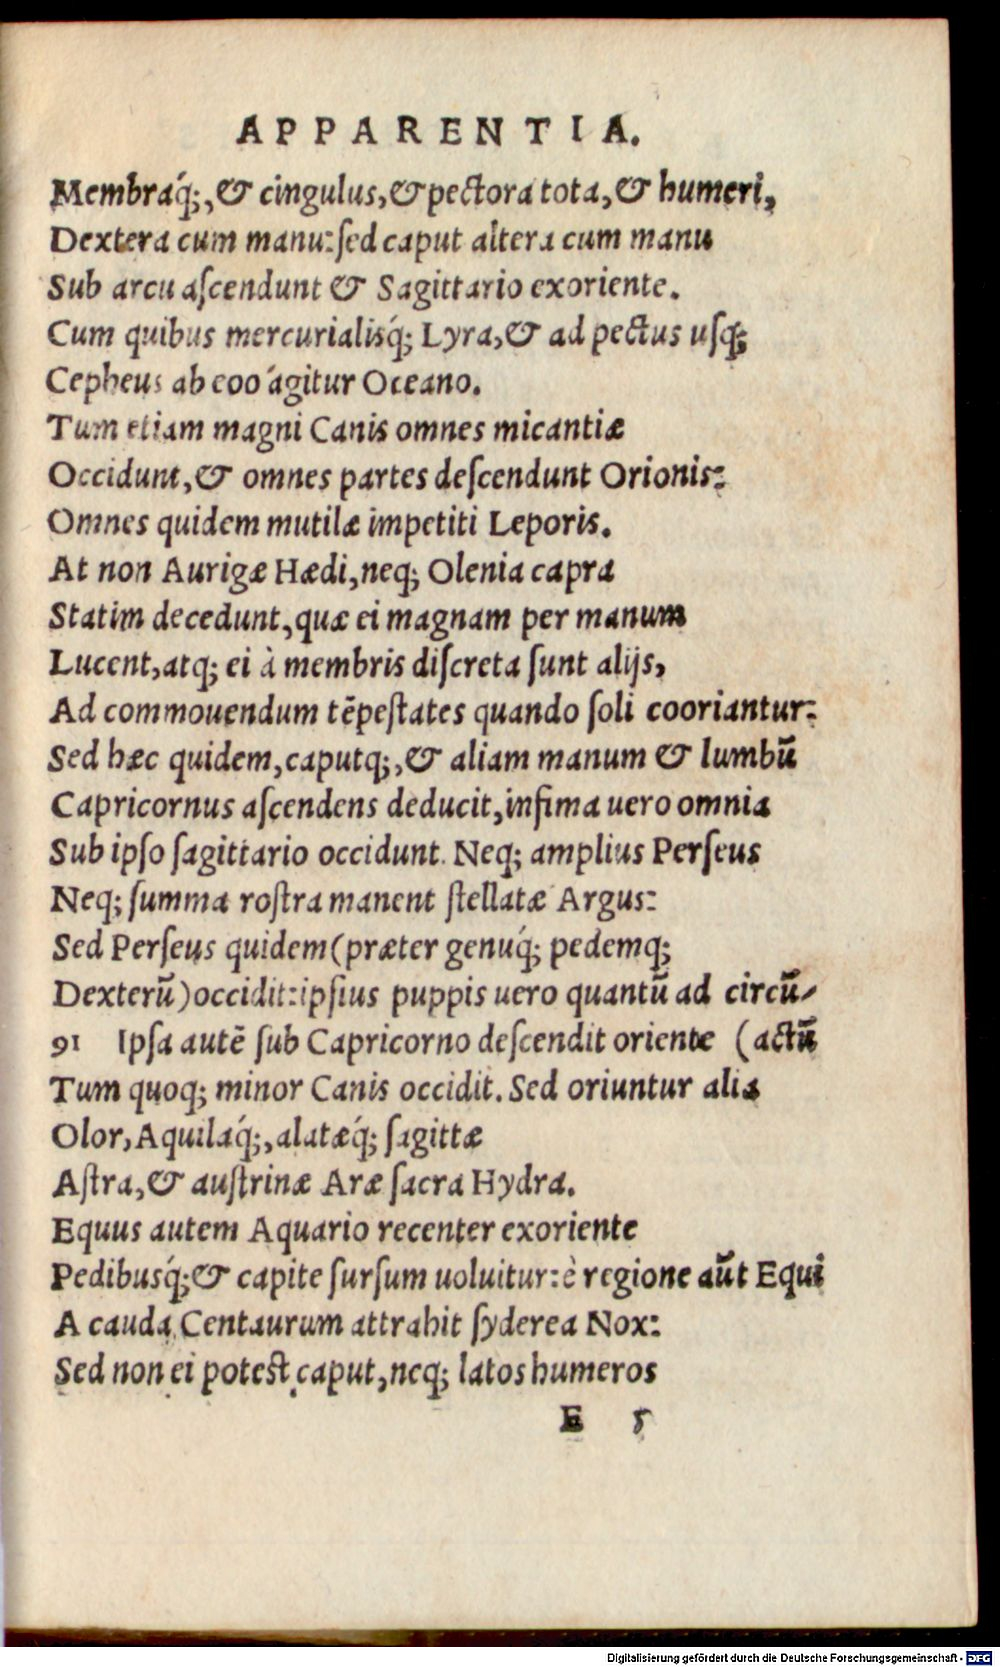 APPARENTIA.
Membraq́;, & cingulus, & pectora tota, & humeri,
Dextera cum manu: ſed caput altera cum manu
Sub arcu aſcendunt & Sagittario exoriente.
Cum quibus mercurialisq́; Lyra, & ad pectus uſq́;
Cepheus ab eoo agitur Oceano.
Tum etiam magni Canis omnes micantiæ
Occidunt, & omnes partes deſcendunt Orionis:
Omnes quidem mutilæ impetiti Leporis.
At non Aurigæ Hædi, neq; Olenia capra
Statim decedunt, quæ ei magnam per manum
Lucent, atq; ei à membris diſcreta ſunt alijs,
Ad commouendum tēpeſtates quando ſoli cooriantur:
Sed hæc quidem, caputq;, & aliam manum & lumbū
Capricornus aſcendens deducit, infima uero omnia
Sub ipſo ſagittario occidunt. Neq; amplius Perſeus
Neq; ſumma roſtra manent ſtellatæ Argus:
Sed Perſeus quidem (præter genuq́; pedemq;
Dexterū) occidit: ipſius puppis uero quantū ad circū-
91 Ipſa autē ſub Capricorno deſcendit oriente (actū
Tum quoq; minor Canis occidit. Sed oriuntur alia
Olor, Aquilaq́;, alatæq́; ſagittæ
Aſtra, & auſtrinæ Aræ ſacra Hydra.
Equus autem Aquario recenter exoriente
Pedibusq́; & capite ſurſum uoluitur: è regione aūt Equi
A cauda Centaurum attrahit ſyderea Nox:
Sed non ei poteſt caput, neq; latos humeros
E 5
Digitalisierung gefördert durch die Deutsche Forschungsgemeinschaft - DFG